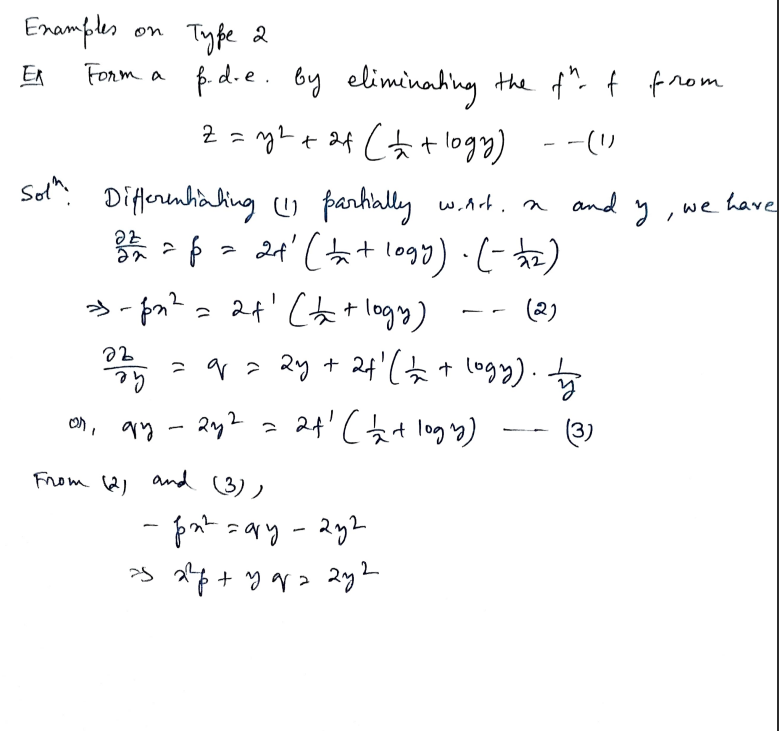 Examples on Type 2
Ex Form a p.d.e. by eliminating the fⁿ. f from
z = y² + 2f (1/x + log y) - - (1)
Solⁿ: Differentiating (1) partially w.r.t. x and y, we have
∂z/∂x = p = 2f' (1/x + log y) · (-1/x²)
⇒ -px² = 2f' (1/x + log y) - - (2)
∂z/∂y = q = 2y + 2f' (1/x + log y) · 1/y
or, qy - 2y² = 2f' (1/x + log y) — (3)
From (2) and (3),
- px² = qy - 2y²
⇒ x²p + yq = 2y²